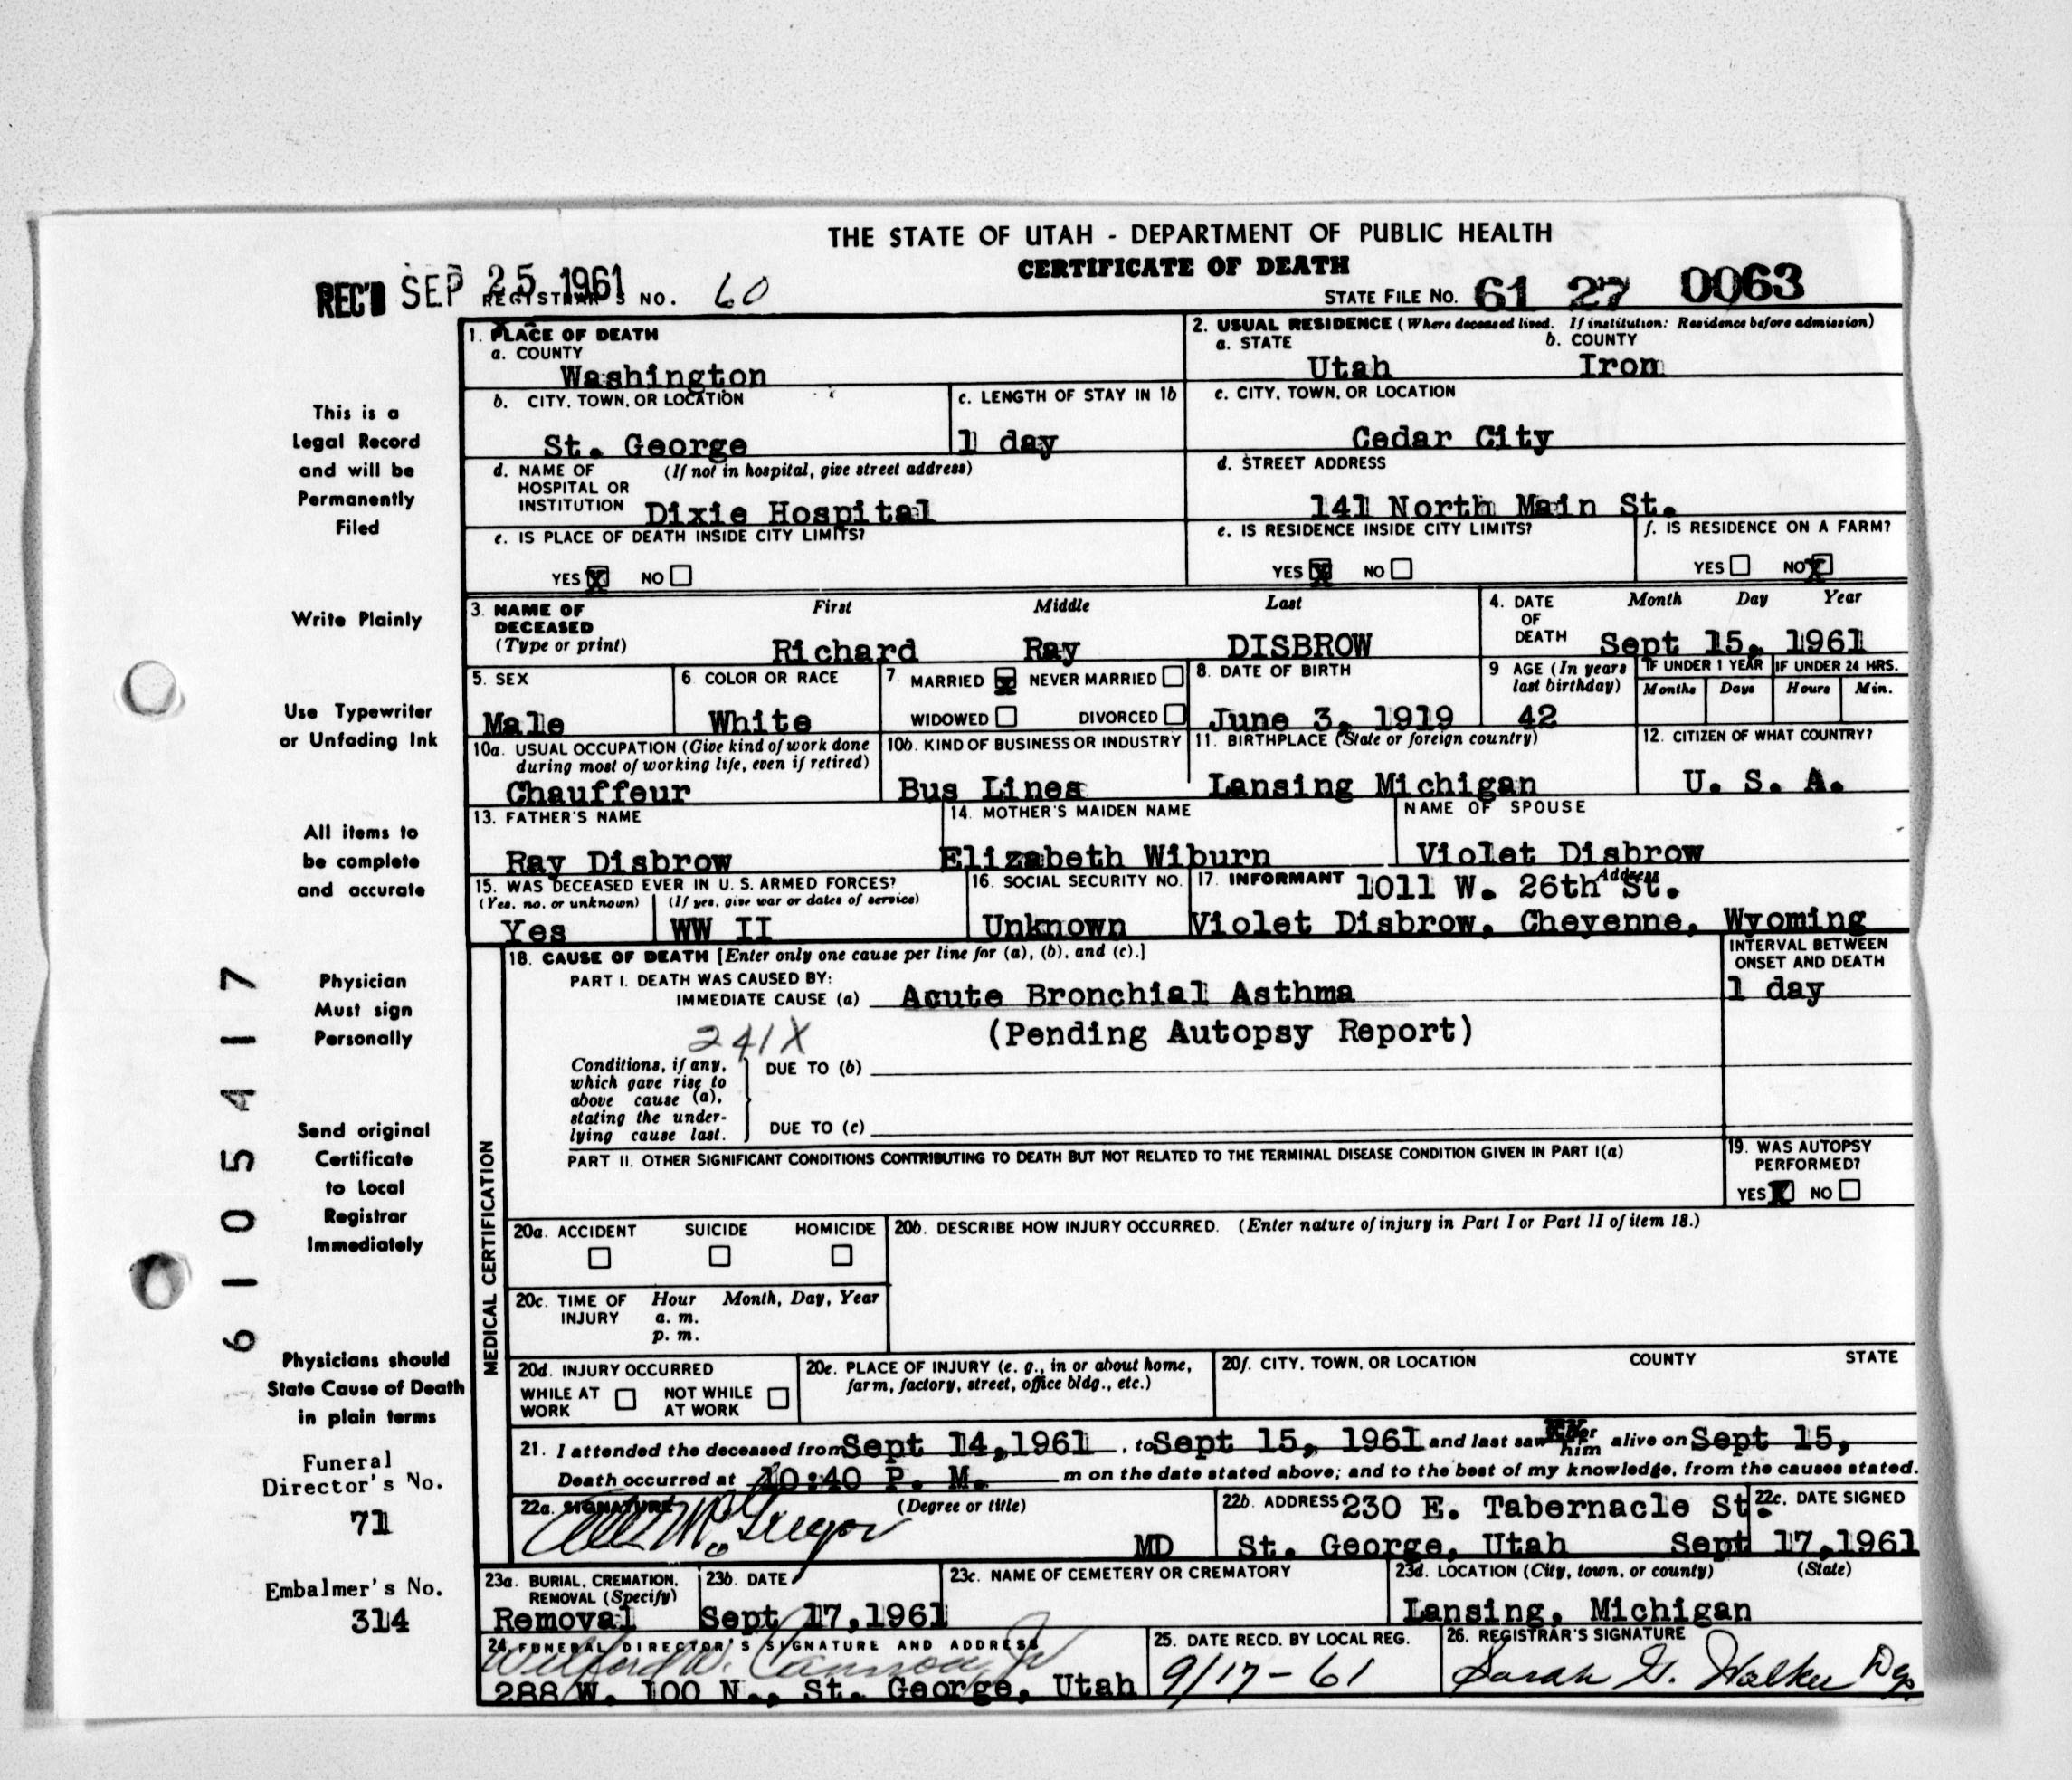 THE STATE OF UTAH - DEPARTMENT OF PUBLIC HEALTH
CERTIFICATE OF DEATH
REC'D SEP 25 1961 REGISTRAR'S NO. 60
STATE FILE No. 61 27 0063
1. PLACE OF DEATH
a. COUNTY
Washington
2. USUAL RESIDENCE (Where deceased lived. If institution: Residence before admission)
a. STATE b. COUNTY
Utah Iron
b. CITY, TOWN, OR LOCATION
St. George
c. LENGTH OF STAY IN 1b
1 day
c. CITY, TOWN, OR LOCATION
Cedar City
d. NAME OF (If not in hospital, give street address)
HOSPITAL OR
INSTITUTION Dixie Hospital
d. STREET ADDRESS
141 North Main St.
e. IS PLACE OF DEATH INSIDE CITY LIMITS?
YES X NO
e. IS RESIDENCE INSIDE CITY LIMITS?
YES X NO
f. IS RESIDENCE ON A FARM?
YES NO X
3. NAME OF First Middle Last
DECEASED
(Type or print) Richard Ray DISBROW
4. DATE Month Day Year
OF
DEATH Sept 15, 1961
5. SEX
Male
6. COLOR OR RACE
White
7. MARRIED X NEVER MARRIED
WIDOWED DIVORCED
8. DATE OF BIRTH
June 3, 1919
9 AGE (In years
last birthday)
42
IF UNDER 1 YEAR IF UNDER 24 HRS.
Months Days Hours Min.
10a. USUAL OCCUPATION (Give kind of work done
during most of working life, even if retired)
Chauffeur
10b. KIND OF BUSINESS OR INDUSTRY
Bus Lines
11. BIRTHPLACE (State or foreign country)
Lansing Michigan
12. CITIZEN OF WHAT COUNTRY?
U. S. A.
13. FATHER'S NAME
Ray Disbrow
14. MOTHER'S MAIDEN NAME
Elizabeth Wiburn
NAME OF SPOUSE
Violet Disbrow
15. WAS DECEASED EVER IN U. S. ARMED FORCES?
(Yes, no, or unknown) (If yes, give war or dates of service)
Yes WW II
16. SOCIAL SECURITY NO.
Unknown
17. INFORMANT Address
1011 W. 26th St.
Violet Disbrow, Cheyenne, Wyoming
MEDICAL CERTIFICATION
18. CAUSE OF DEATH [Enter only one cause per line for (a), (b), and (c).]
INTERVAL BETWEEN
ONSET AND DEATH
PART I. DEATH WAS CAUSED BY:
IMMEDIATE CAUSE (a) Acute Bronchial Asthma 1 day
241X (Pending Autopsy Report)
Conditions, if any,
which gave rise to
above cause (a),
stating the under-
lying cause last.
DUE TO (b)
DUE TO (c)
PART II. OTHER SIGNIFICANT CONDITIONS CONTRIBUTING TO DEATH BUT NOT RELATED TO THE TERMINAL DISEASE CONDITION GIVEN IN PART I(a)
19. WAS AUTOPSY
PERFORMED?
YES X NO
20a. ACCIDENT SUICIDE HOMICIDE
20b. DESCRIBE HOW INJURY OCCURRED. (Enter nature of injury in Part I or Part II of item 18.)
20c. TIME OF Hour Month, Day, Year
INJURY a. m.
p. m.
20d. INJURY OCCURRED
WHILE AT NOT WHILE
WORK AT WORK
20e. PLACE OF INJURY (e. g., in or about home,
farm, factory, street, office bldg., etc.)
20f. CITY, TOWN, OR LOCATION COUNTY STATE
21. I attended the deceased from Sept 14,1961, to Sept 15, 1961 and last saw him alive on Sept 15,
Death occurred at 10:40 P. M. m on the date stated above; and to the best of my knowledge, from the causes stated.
22a. SIGNATURE (Degree or title)
McGregor MD
22b. ADDRESS 230 E. Tabernacle St.
St. George, Utah
22c. DATE SIGNED
Sept 17,1961
23a. BURIAL, CREMATION,
REMOVAL (Specify)
Removal
23b. DATE
Sept 17,1961
23c. NAME OF CEMETERY OR CREMATORY
23d. LOCATION (City, town, or county) (State)
Lansing, Michigan
24. FUNERAL DIRECTOR'S SIGNATURE AND ADDRESS
Wilford W. Cannon Jr
288 W. 100 N., St. George, Utah
25. DATE RECD. BY LOCAL REG.
9/17-61
26. REGISTRAR'S SIGNATURE
Sarah G. Walker Dep
This is a
Legal Record
and will be
Permanently
Filed
Write Plainly
Use Typewriter
or Unfading Ink
All items to
be complete
and accurate
Physician
Must sign
Personally
Send original
Certificate
to Local
Registrar
Immediately
Physicians should
State Cause of Death
in plain terms
Funeral
Director's No.
71
Embalmer's No.
314
6105417